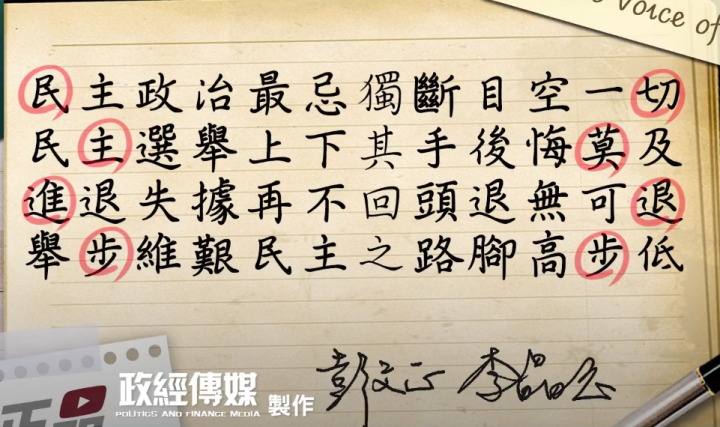 Voice of
民主政治最忌獨斷目空一切
民主選舉上下其手後悔莫及
進退失據再不回頭退無可退
舉步維艱民主之路腳高步低
彭文正 李晶玉
政經傳媒 製作
POLITICS AND FINANCE MEDIA